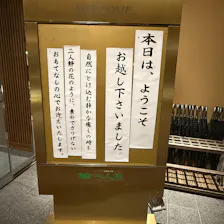 本日は、ようこそ
お越し下さいました。
自然にとけ込む静かな癒しの時を
二人静の花のように、素朴でさりげない
おもてなしの心でお迎えいたします。